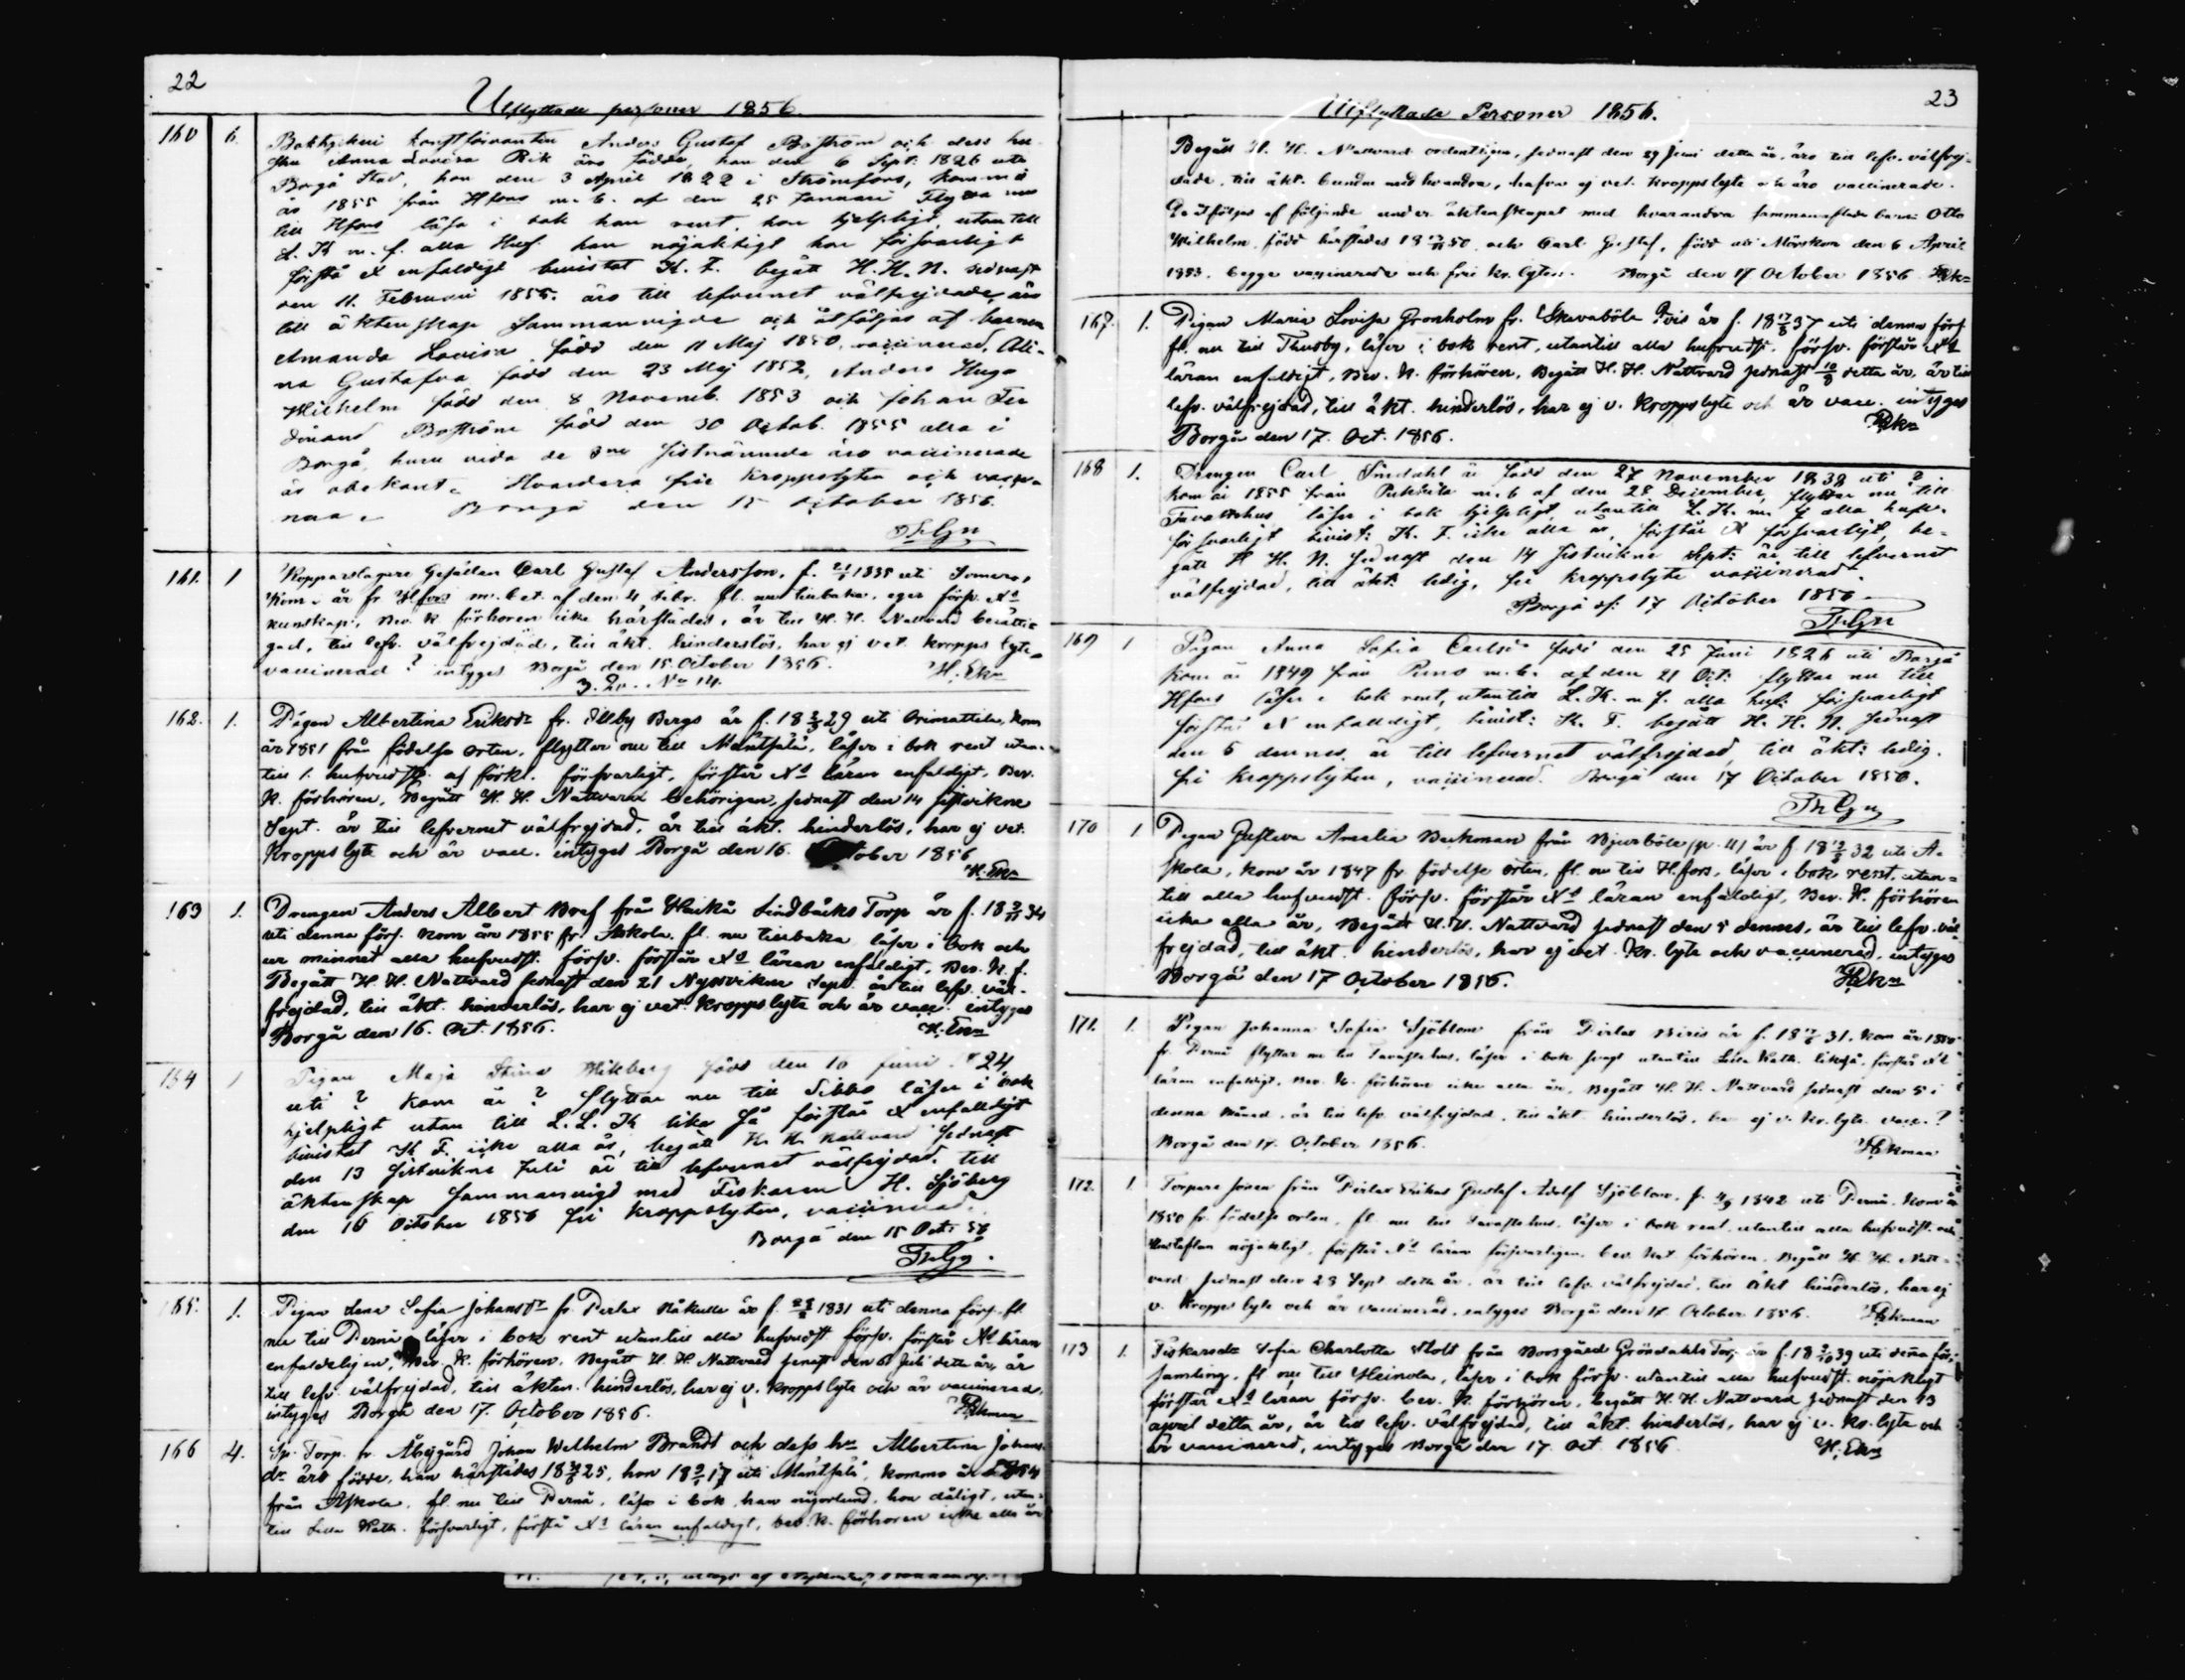 22
Utflyttade personer 1856.
160 6. Boktryckeri konstförvanten Anders Gustaf Boström och dess hu-
stru Anna Lovisa Rik äro födde, han den 6 Sept. 1826 uti
Borgå Stad, hon den 3 April 1822 i Strömfors, kommo
år 1855 från Hfors m. b. af den 25 Januari Flytta nu
till Hfors läsa i bok han rent, hon hjelpligt, utan till
L. K m. f. alla Huf. han nöjaktigt hon försvarligt
förstå X enfaldigt bivistat K. F. begått H. H. N. sednast
den 11 Februari 1855. äro till lefvernet välfrejdade, äro
till äktenskap sammanvigde och åtföljas af barnen
Amanda Lovisa född den 11 Maj 1850, vaccinerad, Ali-
na Gustafva född den 23 Maj 1852, Anders Hugo
Wilhelm född den 8 Novemb. 1853 och Johan Fer
dinand Boström född den 30 Octob. 1855 alla i
Borgå, huru vida de 3ne sistnämnda äro vaccinerade
är obekant. Hvardera frie kroppslyten och vaccine-
rade. Borgå den 15 October 1856.
161. 1 Kopparslagare Gesällen Carl Gustaf Andersson, f. 1835 uti Somero,
Kom i år fr. Hfors m. bet. af den 4 Febr. fl. nu tillbaka, eger försv. Xds
kunskap, Bev. K. förhören icke härstädes, är till H. H. Nattvard berätti-
gad, till lefv. välfrejdad, till äkt. hinderslös, har ej vet. kropps lyte
vaccinerad? intyges Borgå den 15 October 1856. H. Ekn
No 14.
162. 1. Pigan Albertina Eriksdr fr. Illby Bergs är f. 18 29 uti Orimattila, kom
år 1851 från födelse orten, flyttar nu till Mäntsälä, läser i bok rent utan-
till 1. hufvudst. af förkl. försvarligt, förstår Xd läran enfaldigt, Bev.
K. förhören, Begått H. H. Nattvard behörigen, sednast den 14 sistvikne
Sept. är till lefvernet välfrejdad, är till äkt. hinderlös, har ej vet.
Kropps lyte och är vacc. intyges Borgå den 16. October 1856
H. Ekn
163 1. Drengen Anders Albert Bref från Haikå Lindbäcks Torp är f. 18 34
uti denna förs. kom år 1855 fr. Askola, fl. nu tillbaka, läser i bok och
ur minnet alla hufvudst. försv. förstår Xd läran enfaldigt, Bev. K. f.
Begått H. H. Nattvard sednast den 21 Nyssvikne Sept. är till lefv. väl-
frejdad, till äkt. hinderlös, har ej vet. kropps lyte och är vacc. intyges
Borgå den 16. Oct. 1856. H. Ekn
164 1 Pigan Maja Stina Wikberg född den 10 Juni 24
uti? kom år? flyttar nu till Sibbo läser i bok
hjelpligt utan till L. L. K lika så förstår X enfaldigt
bivistat K F. icke alla år, begått H. H. Nattvard sednast
den 13 sistvikne Juli är till lefvernet välfrejdad, till
äktenskap sammanvigd med Fiskaren H. Sjöberg
den 16 October 1856 fri kroppslyten, vaccinerad.
Borgå den 15 Oct. 56
165. 1. Pigan Lena Sofia Johansdr fr. Perlax är f. 1831 uti denna förs. fl.
nu till Pernå läser i bok rent utantill alla hufvudst. försv. förstår Xd läran
enfaldeligen, Bev. K. förhören. Begått H. H. Nattvard senast den 6 Juli detta år, är
till lefv. välfrejdad, till äkten. hinderlös, har ej v. kropps lyte och är vaccinerad,
intyges Borgå den 17. October 1856. H. Ekman
166 4. Sp. Torp. fr. Åbygård Johan Wilhelm Brandt och dess hu Albertina Johans-
dr. äro födde, han härstädes 18 25, hon 18 17 uti Mäntsälä, kommo år 1854
från Askola, fl. nu till Pernå, läsa i bok, han någorlund, hon dåligt, utan-
till Lilla Kath. försvarligt, förstå Xd läran enfaldigt, bev. K. förhören icke alla år
23
Utflyttade Personer 1856.
Begått H. H. Nattvard ordentligen, sednast den 29 Juni detta år, äro till lefv. välfrej-
dade, till äkt. bundne med hvandra, hafva ej vet. kropps lyte och äro vaccinerade.
De åtföljas af följande under äktenskapet med hvarandra sammanaflade barn: Otto
Wilhelm född härstädes 18 50 och Carl Gustaf, född uti Mörskom den 6 April
1853. begge vaccinerade och frie kr. lyten. Borgå den 17 October 1856 H. Ekn
167. 1. Pigan Maria Lovisa Gronholm fr. Skavaböle är f. 18 37 uti denna förs.
fl. nu till Thusby, läser i bok rent, utantill alla hufvudst. försv. förstår Xd
läran enfaldigt, Bev. K. förhören, Begått H. H. Nattvard sednast detta år, är till
lefv. välfrejdad, till äkt. hinderlös, har ej v. kropps lyte och är vacc. intyges
Borgå den 17. Oct. 1856. H. Ekn
168 1. Drengen Carl Sundahl är född den 27 November 1838 uti?
kom år 1855 från Pukkila m. b af den 28 December, flyttar nu till
Tavasthus läser i bok hjelpligt, utan till L. K. m. f. alla hufv.
försvarligt bivist: K. F. icke alla år, förstår X försvarligt, be-
gått H. H. N. sednast den 14 sistvikne Sept: är till lefvernet
välfrejdad, till äkt: ledig, fri kroppslyte vaccinerad.
Borgå d: 17 October 1856
169 1 Pigan Anna Sofia Carlsdr född den 25 Juni 1826 uti Borgå
kom år 1849 från m. b. af den 21 Oct: flyttar nu till
Hfors läser i bok rent, utantill L. K. m f. alla huf: försvarligt
förstår X enfaldigt, bivist: K. F. begått H. H. N. sednast
den 5 dennes, är till lefvernet välfrejdad, till äkt: ledig.
fri kroppslyten, vaccinerad. Borgå den 17 October 1856.
170 1 Pigan Gustava Amalia Beckman från Bjurböle är f. 18 32 uti A-
skola, kom år 1847 fr. födelse orten, fl. nu till H.fors, läser i bok rent, utan-
till alla hufvudst. försv. förstår Xd läran enfaldigt, Bev. K. förhören
icke alla år, Begått H. H. Nattvard sednast den 5 dennes, är till lefv. väl-
frejdad, till äkt. hinderlös, har ej vet. kr. lyte och vaccinerad, intyges
Borgå den 17 October 1856. H. Ekn
171. 1. Pigan Johanna Sofia Sjöblom från Pirlax är f. 18 31. kom år 1850
fr. Pernå flyttar nu till Tavastehus, läser i bok svagt utantill Lilla Kath. likaså, förstår Xd
läran enfaldigt, Bev. K. förhören icke alla år, Begått H. H. Nattvard sednast den 5 i
denna Månad, är till lefv. välfrejdad, till äkt. hinderlös, har ej v. kr. lyte, vacc.?
Borgå den 17. October 1856. H Ekman
172. 1 Torpare Sonen från Pirlax Erikas Gustaf Adolf Sjöblom, f. 1842 uti Pernå. kom år
1850 fr. födelse orten, fl. nu till Tavastehus, läser i bok rent, utantill alla hufvudst. och
Hustaflan nöjaktigt, förstår Xd läran försvarligen, bev. Kat. förhören. Begått H. H. Natt-
vard sednast den 28 Sept. detta år, är till lefv. välfrejdad, till äkt hinderlös, har ej
v. Kropps lyte och är vaccinerad, intyges Borgå den 17 October 1856. H Ekman
173 1. Fiskaredr Sofia Charlotta från Boesgård Gröndahls Torp är f. 18 39 uti denna för-
samling, fl. nu till Heinola, läser i bok försv. utantill alla hufvudst. nöjaktigt
förstår Xd läran försv. bev. K. förhören, begått H. H. Nattvard sednast den 13
april detta år, är till lefv. välfrejdad, till äkt. hinderlös, har ej v. kr. lyte och
är vaccinerad, intyges Borgå den 17 Oct 1856 H. Ekn